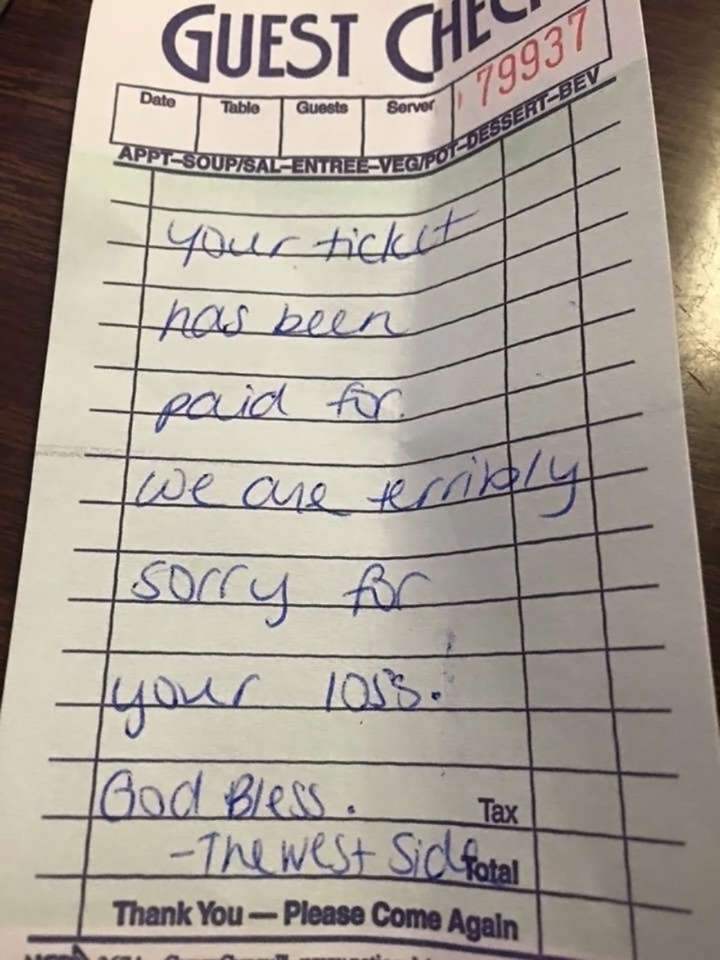 GUEST CHEC
79937
Date Table Guests Server
APPT–SOUP/SAL–ENTREE–VEG/POT–DESSERT–BEV
your ticket
has been
paid for.
we are terribly
sorry for
your loss.
God Bless. Tax
-The West Side Total
Thank You — Please Come Again